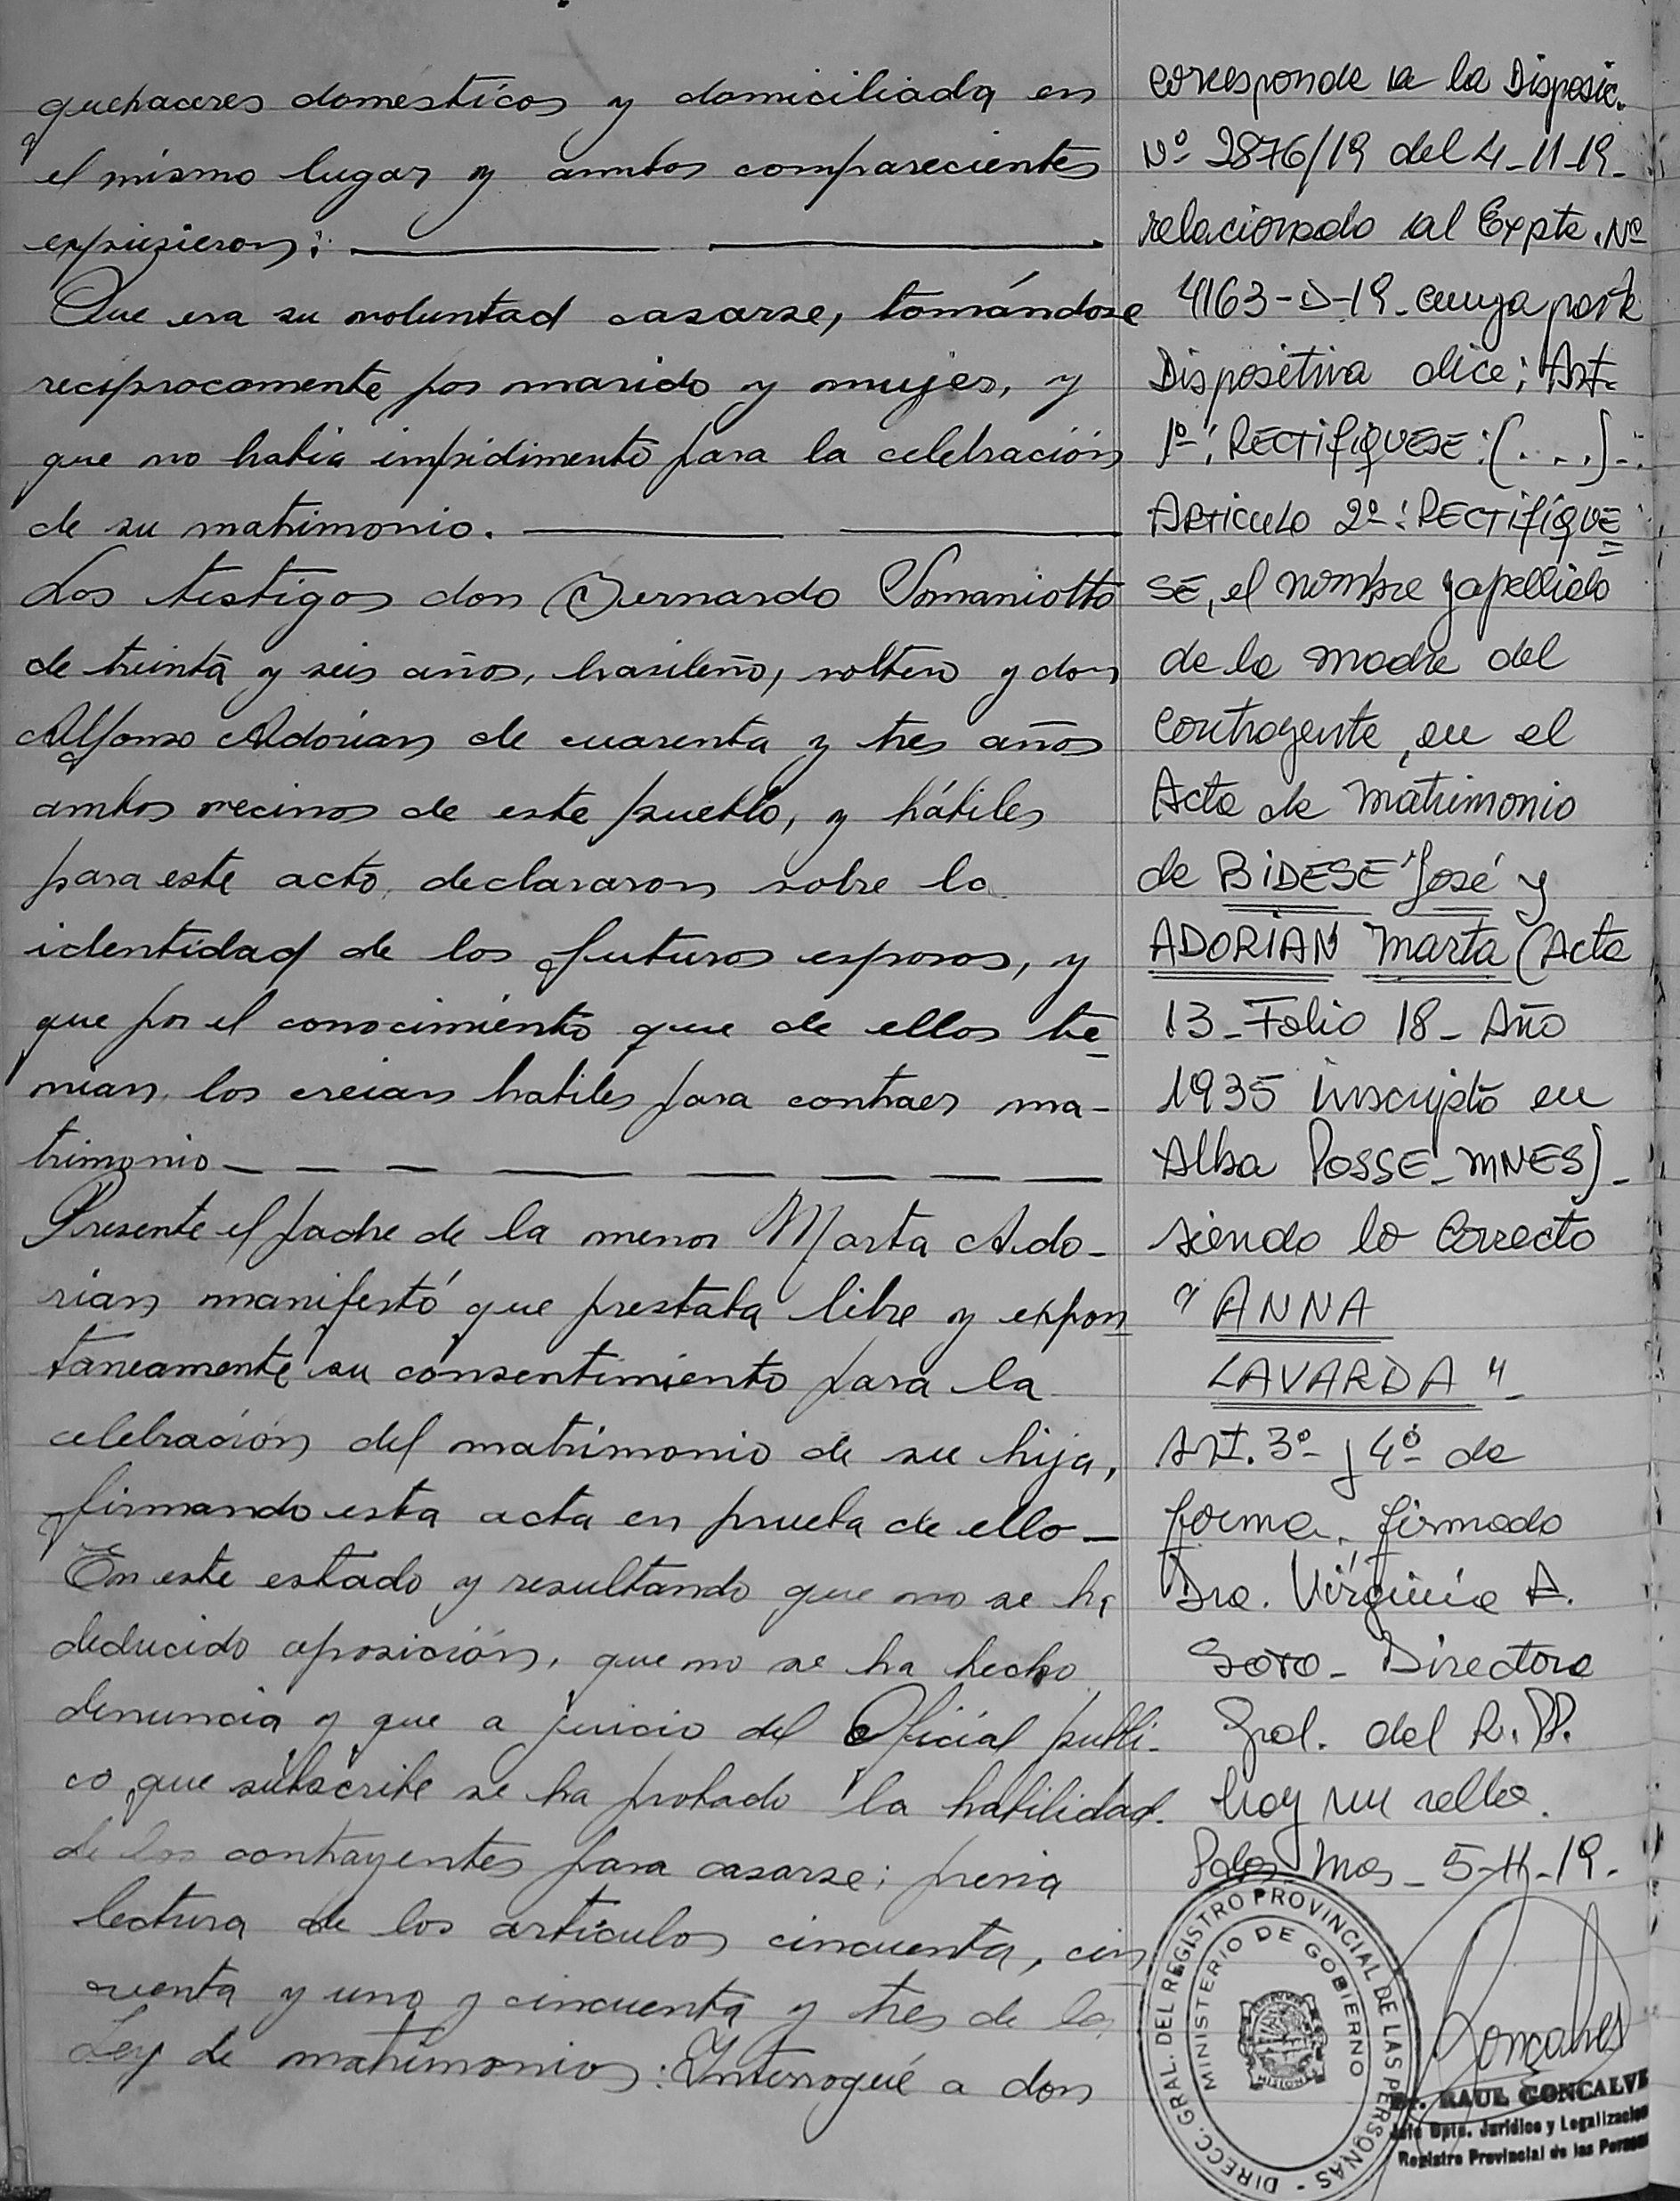 quehaceres domésticos y domiciliada en
el mismo lugar y ambos comparecientes
expusieron:
Que era su voluntad casarse, tomándose
reciprocamente por marido y mujer, y
que no habia impidimento para la celebración
de su matrimonio.
Los testigos don Bernardo Somaniotto
de treinta y seis años, brasileño, soltero y don
Alfonso Adorian de cuarenta y tres años
ambos vecinos de este pueblo, y hábiles
para este acto, declararon sobre la
identidad de los futuros esposos, y
que por el conocimiento que de ellos te
nian, los creian habiles para contraer ma-
trimonio
Presente el padre de la menor Marta Ado-
rian manifestó que prestaba libre y expon
taneamente su consentimiento para la
celebración del matrimonio de su hija,
firmando esta acta en prueba de ello
En este estado y resultando que no se ha
deducido oposición, que no se ha hecho
denuncia y que a juicio del Oficial publi-
co que subscribe se ha probado la habilidad
de los contrayentes para casarse; previa
lectura de los artículos cincuenta, cin
cuenta y uno y cincuenta y tres de la
Ley de matrimonio: Interrogué a don
corresponde a la Disposic.
Nº 2876/19 del 4-11-19-
relacionado al Expte. Nº
4163-D-19- cuya parte
Dispositiva dice: Art.
1º: RECTIFIQUESE: (...).
Articulo 2º: RECTIFIQUE
SE, el nombre y apellido
de la madre del
contrayente, en el
Acta de Matrimonio
de BIDESE José y
ADORIAN Marta (Acta
13- Folio 18- Año
1935 inscripto en
Alba POSSE- MNES)-
siendo lo correcto
"ANNA
LAVARDA"-
Art. 3º y 4º de
forma, firmado
Dra. Virginia A.
Soto- Directora
Gral. del R.P.P.
hay un sello.
Pdas- Mnes- 5-11-19-
DIRECC. GRAL. DEL REGISTRO PROVINCIAL DE LAS PERSONAS -
MINISTERIO DE GOBIERNO
MISIONES
Goncalves
Dr. RAUL GONCALVE
Jefe Dpto. Jurídico y Legalizacion
Registro Provincial de las Person